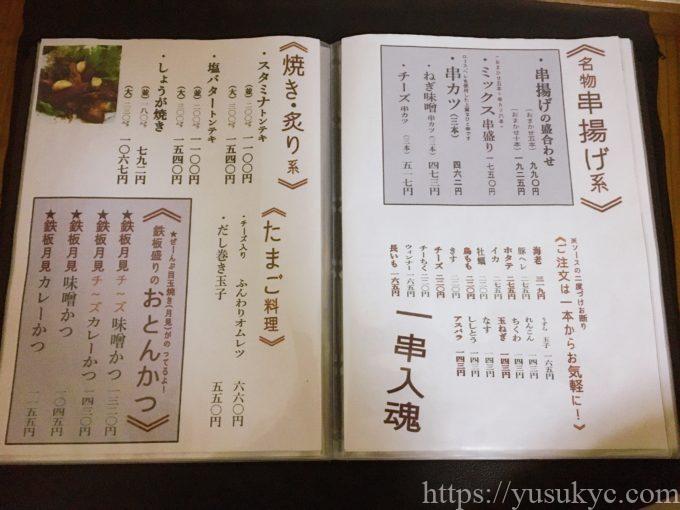 《名物 串揚げ系》
・串揚げの盛合わせ
(おまかせ五本) 九九〇円
(おまかせ十本) 一九二五円
・ミックス串盛り 一七五〇円
・串カツ(三本) 四六二円
ねぎ味噌串カツ(三本) 四七三円
・チーズ串カツ(三本) 五一七円
※ソースの二度づけお断り
《ご注文は一本からお気軽に!》
海老 三一九円
豚ヘレ 二七五円
ホタテ 二七五円
イカ 二七五円
牡蠣 二二〇円
鳥もも 二二〇円
きす 二二〇円
チーズ 二二〇円
チーちく 二二〇円
ウィンナー 一六五円
長いも 一六五円
うずら玉子 一六五円
れんこん 一四三円
ちくわ 一四三円
玉ねぎ 一四三円
なす 一四三円
ししとう 一四三円
アスパラ 一四三円
一串入魂
《焼き・炙り系》
・スタミナトンテキ
(並) 二〇〇g 一一〇〇円
(大) 三〇〇g 一五四〇円
・塩バタートンテキ
(並) 二〇〇g 一一〇〇円
(大) 三〇〇g 一五四〇円
・しょうが焼き
(並) 一八〇g 七九二円
(大) 二五〇g 一〇六七円
《たまご料理》
・チーズ入り ふんわりオムレツ 六六〇円
・だし巻き玉子 五五〇円
★ぜーんぶ目玉焼き(月見)がのってるよ!
《鉄板盛りのおとんかつ》
★鉄板月見チーズ味噌かつ 一三二〇円
★鉄板月見チーズカレーかつ 一四三〇円
★鉄板月見 味噌かつ 一〇四五円
★鉄板月見 カレーかつ 一一五五円
https://yusukyc.com